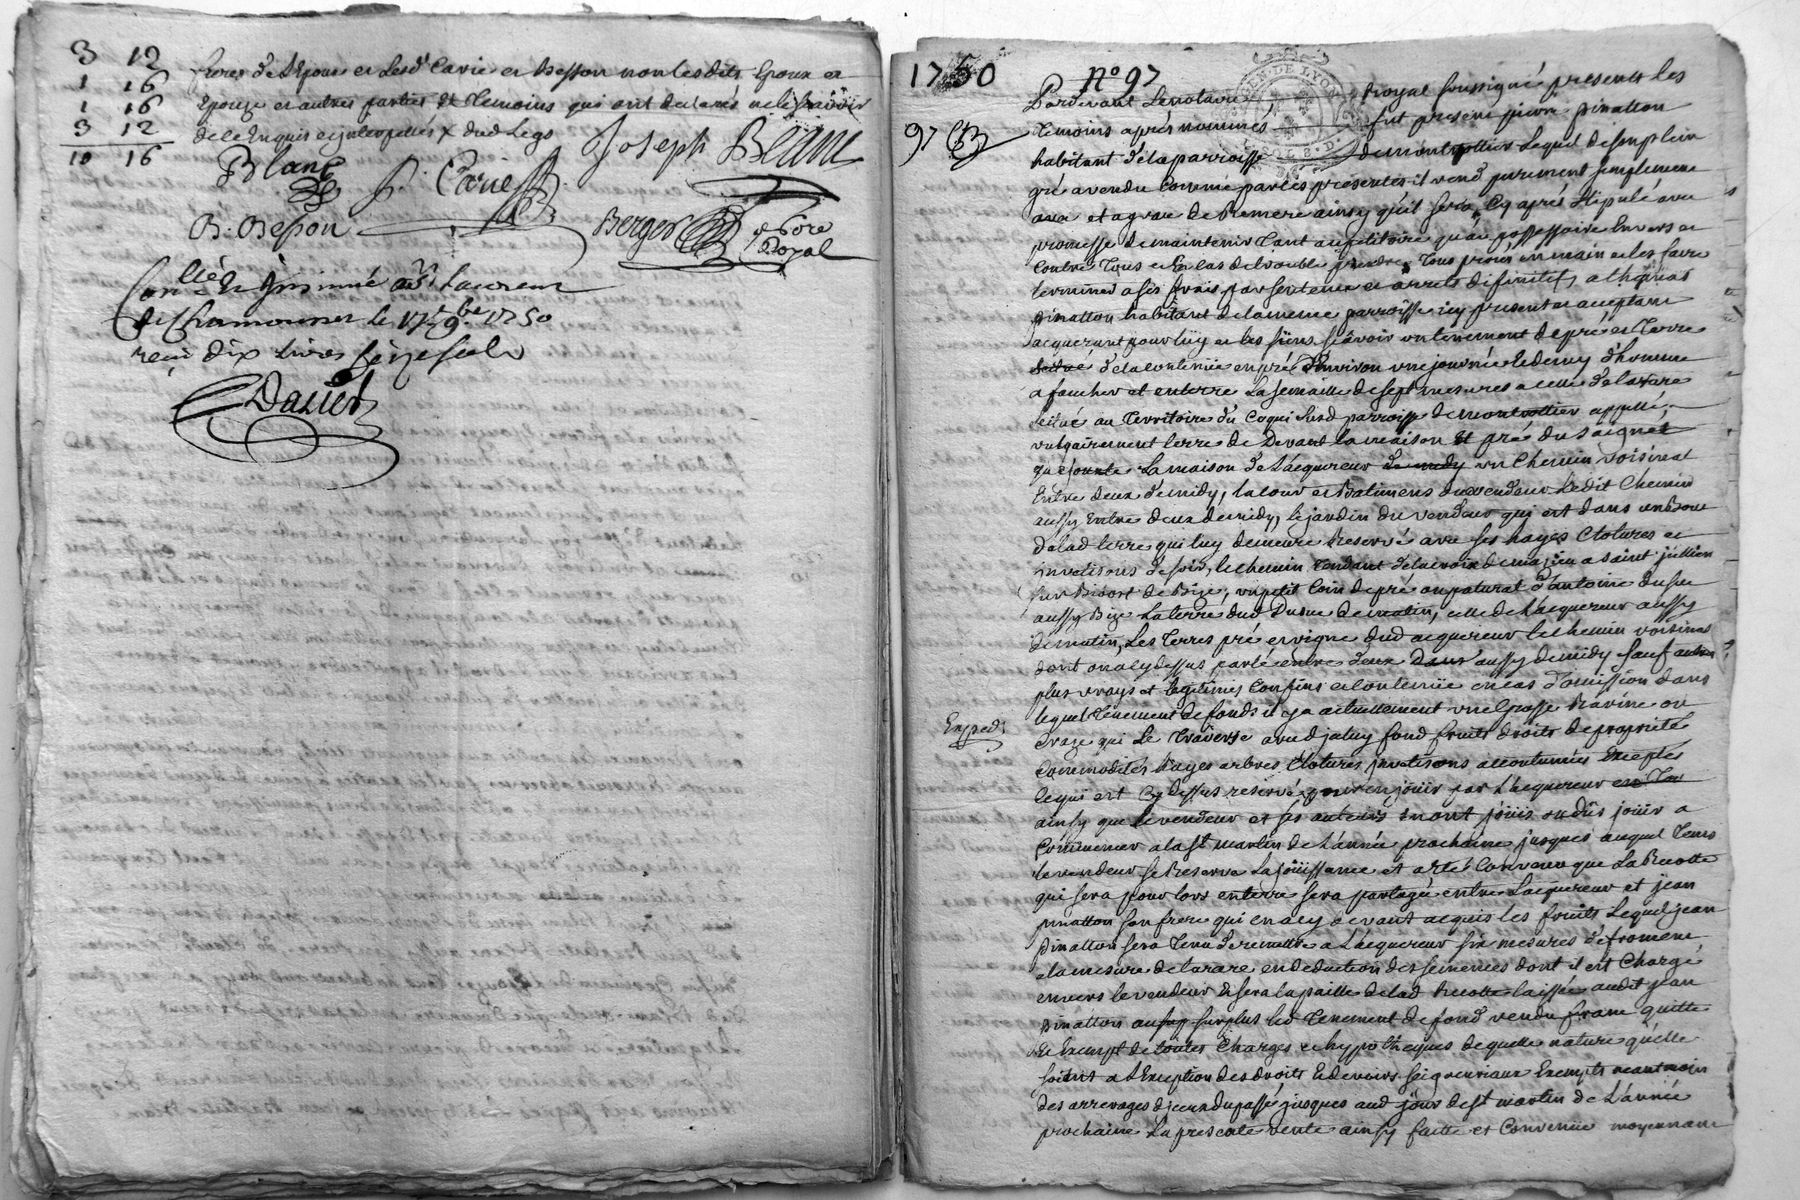 3 12
1 16
1 16
3 12
10 16
freres de L'Epoux et Lesd. Carie et Besson non lesdits Epoux et
Epouze et autres parties Et Temoins qui ont declarés ne le sçavoir
de ce Enquis et interpellés
Joseph Blanc
Blanc
Carie
B. Besson
Berger
Royal
Con.llé Et Insinué a St Laurent
de Chamousset le 17e 9.bre 1750
reçu dix Livres seize sols
Dalier
1750
N° 97
97
GEN. DE LYON
Pardevant Lenotaire Royal soussigné presents les
Temoins après nommés fut present pierre pinatton
habitant de la parroisse de montrottier Lequel de son plein
gré a vendu Comme par les presentes il vend purement simplement
avec et a grace de Remere ainsy qu'il sera Cy après stipulé avec
promesse de maintenir Tant au petitoire qu'au possessoire Envers et
Contre Tous et En cas de trouble prendre Tous procès en main et les faire
terminer a ses frais par sentence et arrets definitifs a
pinatton habitant de la meme parroisse icy present et acceptant
acquereur pour luy et les siens sçavoir un tenement de pré et Terre
de la contenüe en pré d'Environ une journée Et demy d'homme
a faucher et en terre La semaille de sept mesures a celle de larare
scitué au Territoire du Coqui susd. parroisse de montrottier appellé
vulgairement terre de Devant La maison Et pré du saignet
La maison de L'acquereur un Chemin voisinal
Entre deux de midy, la cour et Batimens du vendeur Ledit Chemin
aussy Entre deux de midy, le jardin du vendeur qui est dans un Bout
de lad. terre qui luy demeure Reservé avec ses hayes Clotures et
invetisons de soir, le chemin tendant de la croix de a saint jullien
sur Bibost de Bize, un petit Coin de pré ou patural d'antoine
aussy Bize La terre dud. de matin, celle de L'acquereur aussy
de matin, Les Terres pré et vigne dud. acquereur le chemin voisinal
dont on a cy dessus parlé entre deux aussy de midy sauf autres
plus vrays et legitimes Confins et Contenüe en cas d'omission dans
lequel Tenement de fonds il y a actuellement une Grosse Ravine ou
Expedé
qui Le Traverse avec d'jaluy fond fruits droits de proprieté
Commodités hayes arbres Clotures invetisons accoutumées Exceptés
Ce qui est Cy dessus reservé pour en joüir par L'acquereur
ainsy que Le vendeur et ses auteurs en ont joüis ou dûs joüir a
Commencer a la St martin de L'année prochaine jusques auquel Tems
le vendeur se Reserve La joüissance et a été Convenu que La Recolte
qui sera pour lors en terre sera partagée entre L'acquereur et jean
pinatton son frere qui en a cy devant acquis les fruits Lequel jean
Pinatton sera Tenu de remettre a L'acquereur six mesures de froment
a la mesure de larare en deduction des semences dont il est Chargé
envers le vendeur Et sera la paille de lad. Recolte laissée audit jean
Pinatton au surplus led. Tenement de fond vendu franc quitte
Et Exempt de toutes Charges et hypotheques de quelle nature qu'elle
soient a L'Exception des droits Et devoirs seigneuriaux Exempts neantmoin
des arrerages d'jceux du passé jusques aud. jour de St martin de L'année
prochaine La presente vente ainsy faitte et Convenüe moyennant